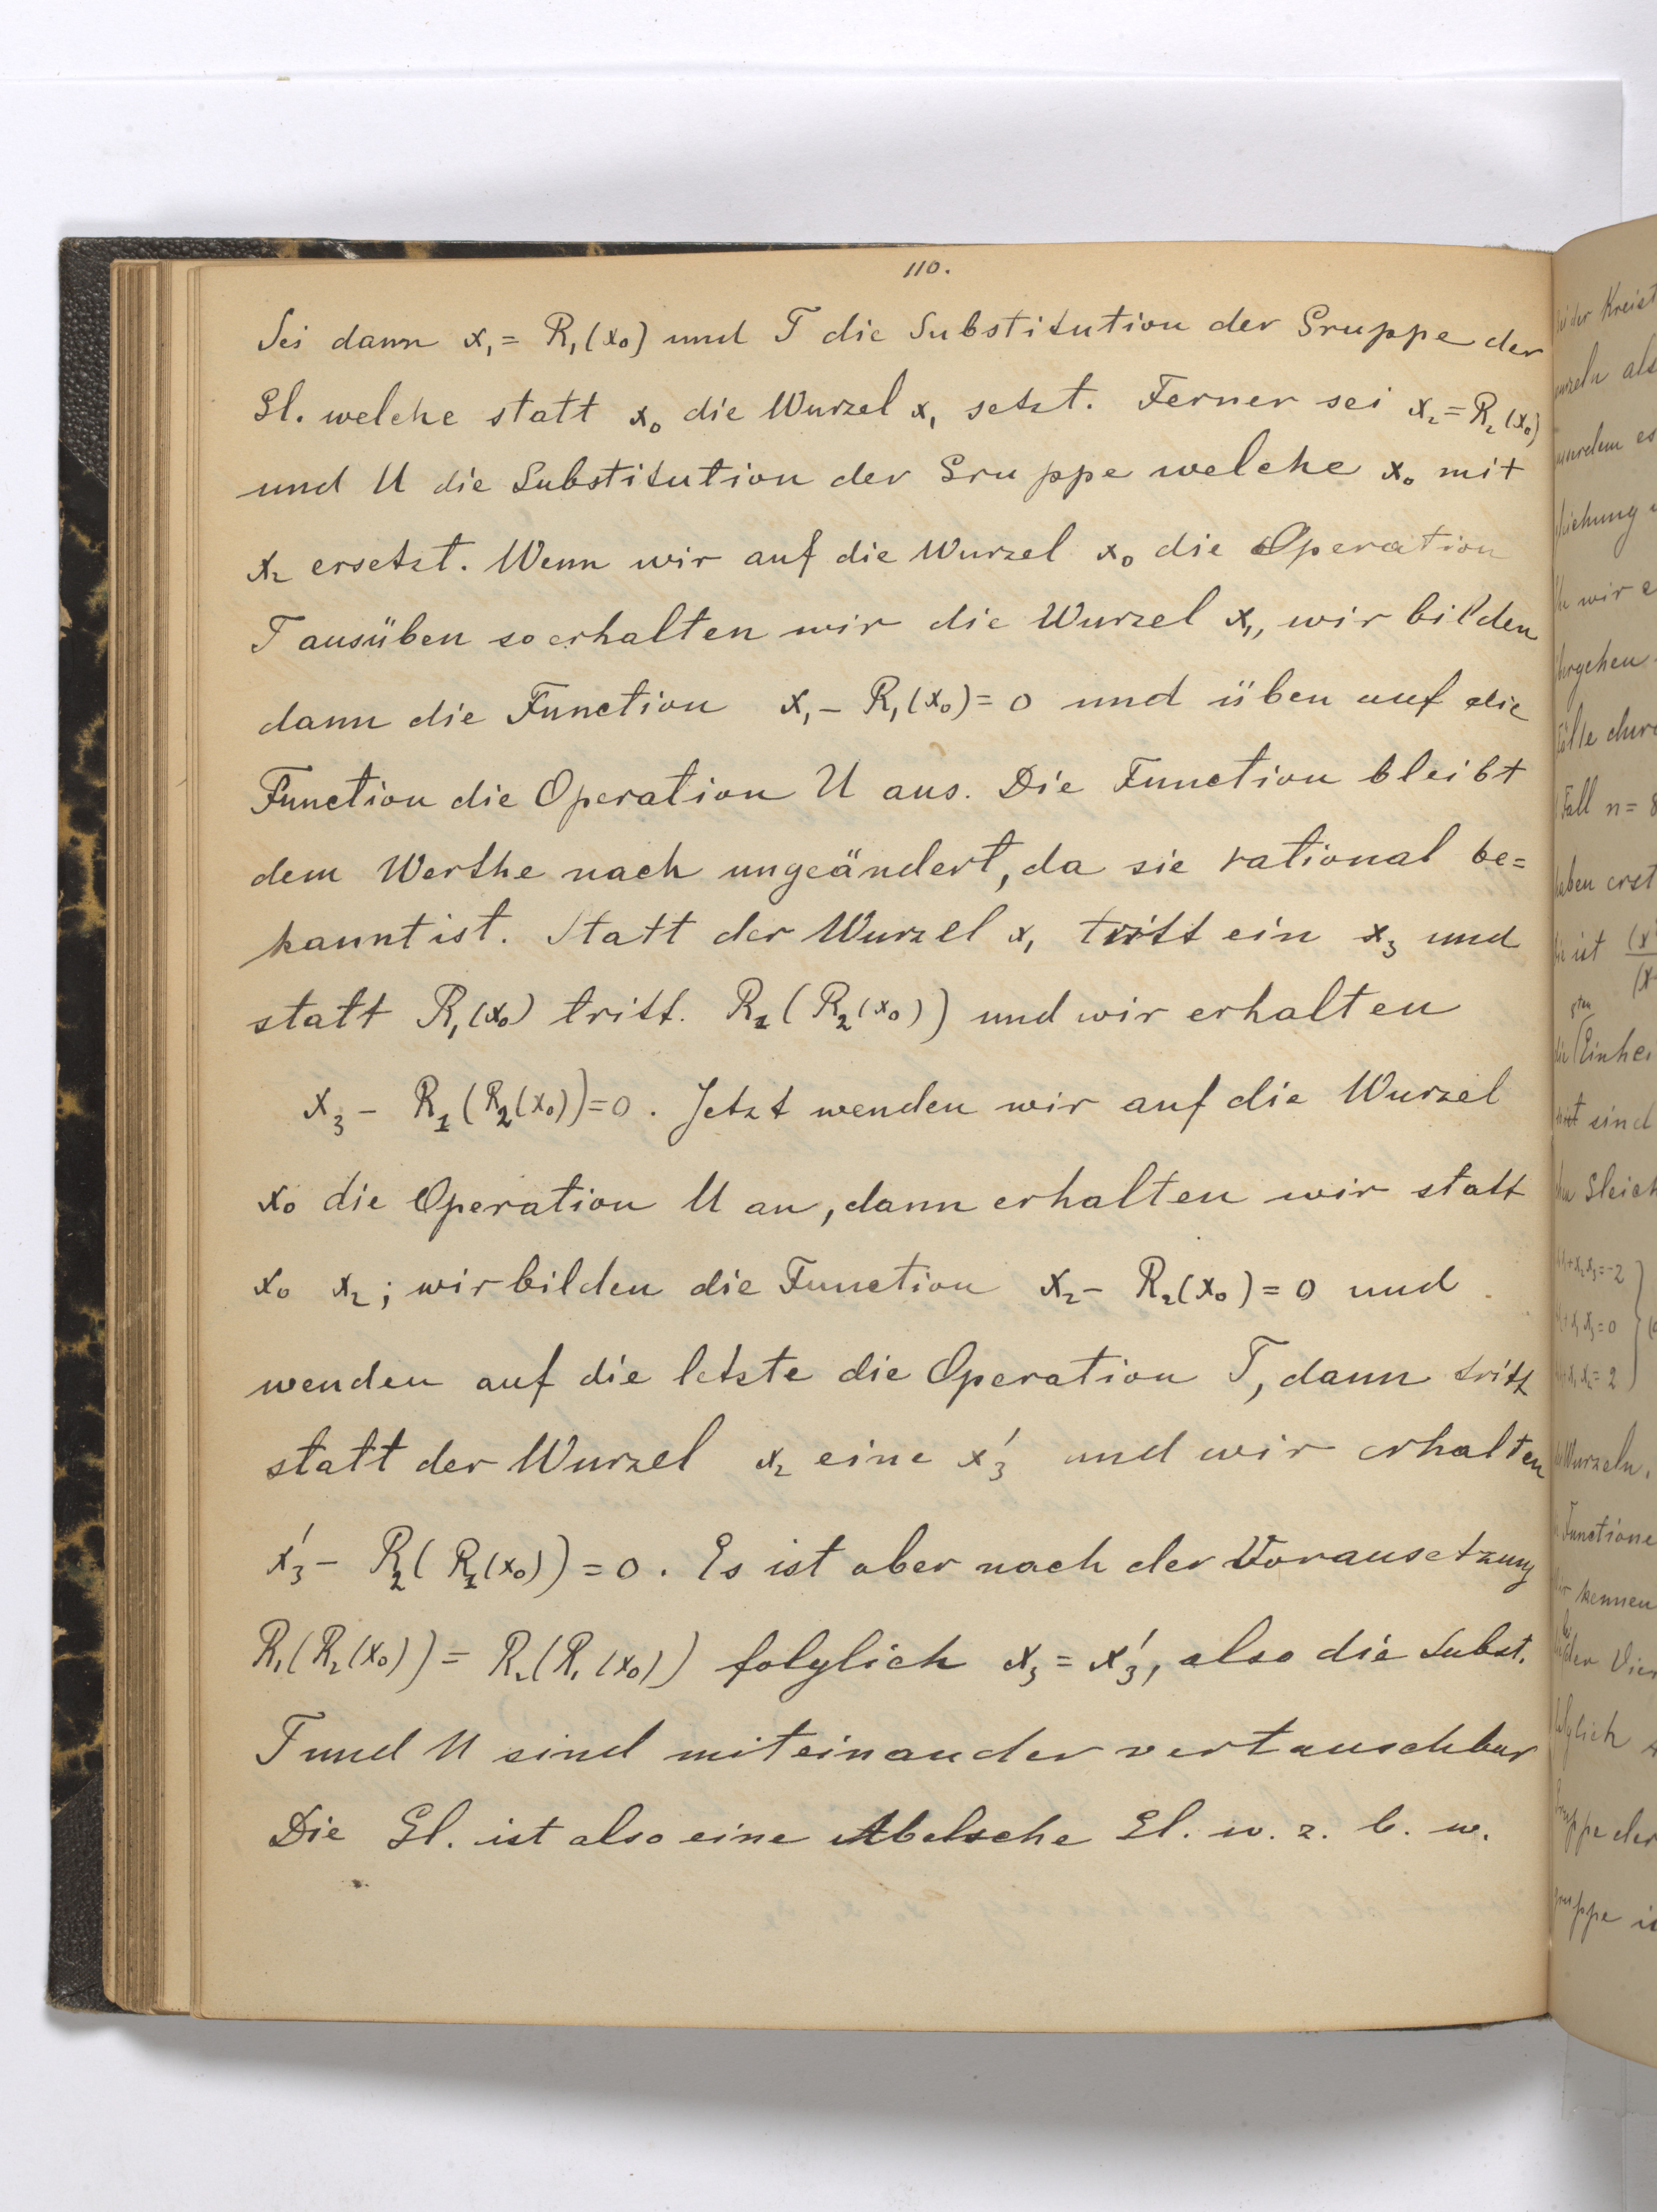 110.
Sei dann x₁ = R₁(x₀) und T die Substitution der Gruppe der
Gl. welche statt x₀ die Wurzel x₁ setzt. Ferner sei x₂ = R₂(x₀)
und U die Substitution der Gruppe welche x₀ mit
x₂ ersetzt. Wenn wir auf die Wurzel x₀ die Operation
T ausüben so erhalten wir die Wurzel x₁, wir bilden
dann die Function x₁ – R₁(x₀) = 0 und üben auf die
Function die Operation U aus. Die Function bleibt
dem Werthe nach ungeändert, da sie rational be=
kannt ist. Statt der Wurzel x₁ tritt ein x₃ und
statt R₁(x₀) tritt. R₁(R₂(x₀)) und wir erhalten
x₃ – R₁(R₂(x₀)) = 0. Jetzt wenden wir auf die Wurzel
x₀ die Operation U an, dann erhalten wir statt
x₀ x₂; wir bilden die Function x₂ – R₂(x₀) = 0 und
wenden auf die letzte die Operation T, dann tritt
statt der Wurzel x₂ eine x₃' und wir erhalten
x₃' – R₂(R₁(x₀)) = 0. Es ist aber nach der Vorausetzung
R₁(R₂(x₀)) = R₂(R₁(x₀)) folglich x₃ = x₃', also die Subst.
T und U sind miteinander vertauschbar
Die Gl. ist also eine Abelsche Gl. w. z. b. w.
der Kreist
als
es
wir e
Fall n = 8
erst
ist
sten
Einhei
sind
Gleich
x₃ = -2
= 0
= 2
Wurzeln.
Functione
kennen
der Vier
der